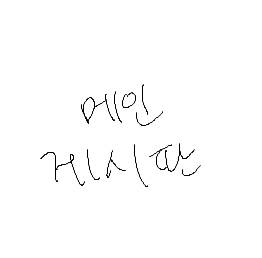 메인
게시판